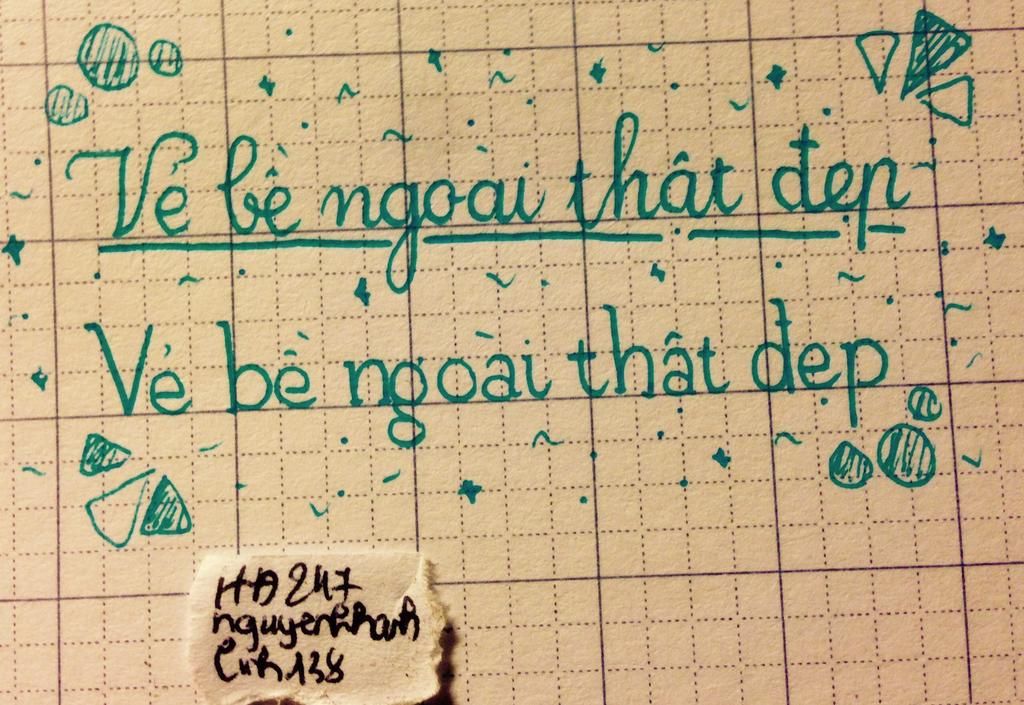 Vẻ bề ngoài thật đẹp
Vẻ bề ngoài thật đẹp
HĐ247
nguyenkhanh
Linh138